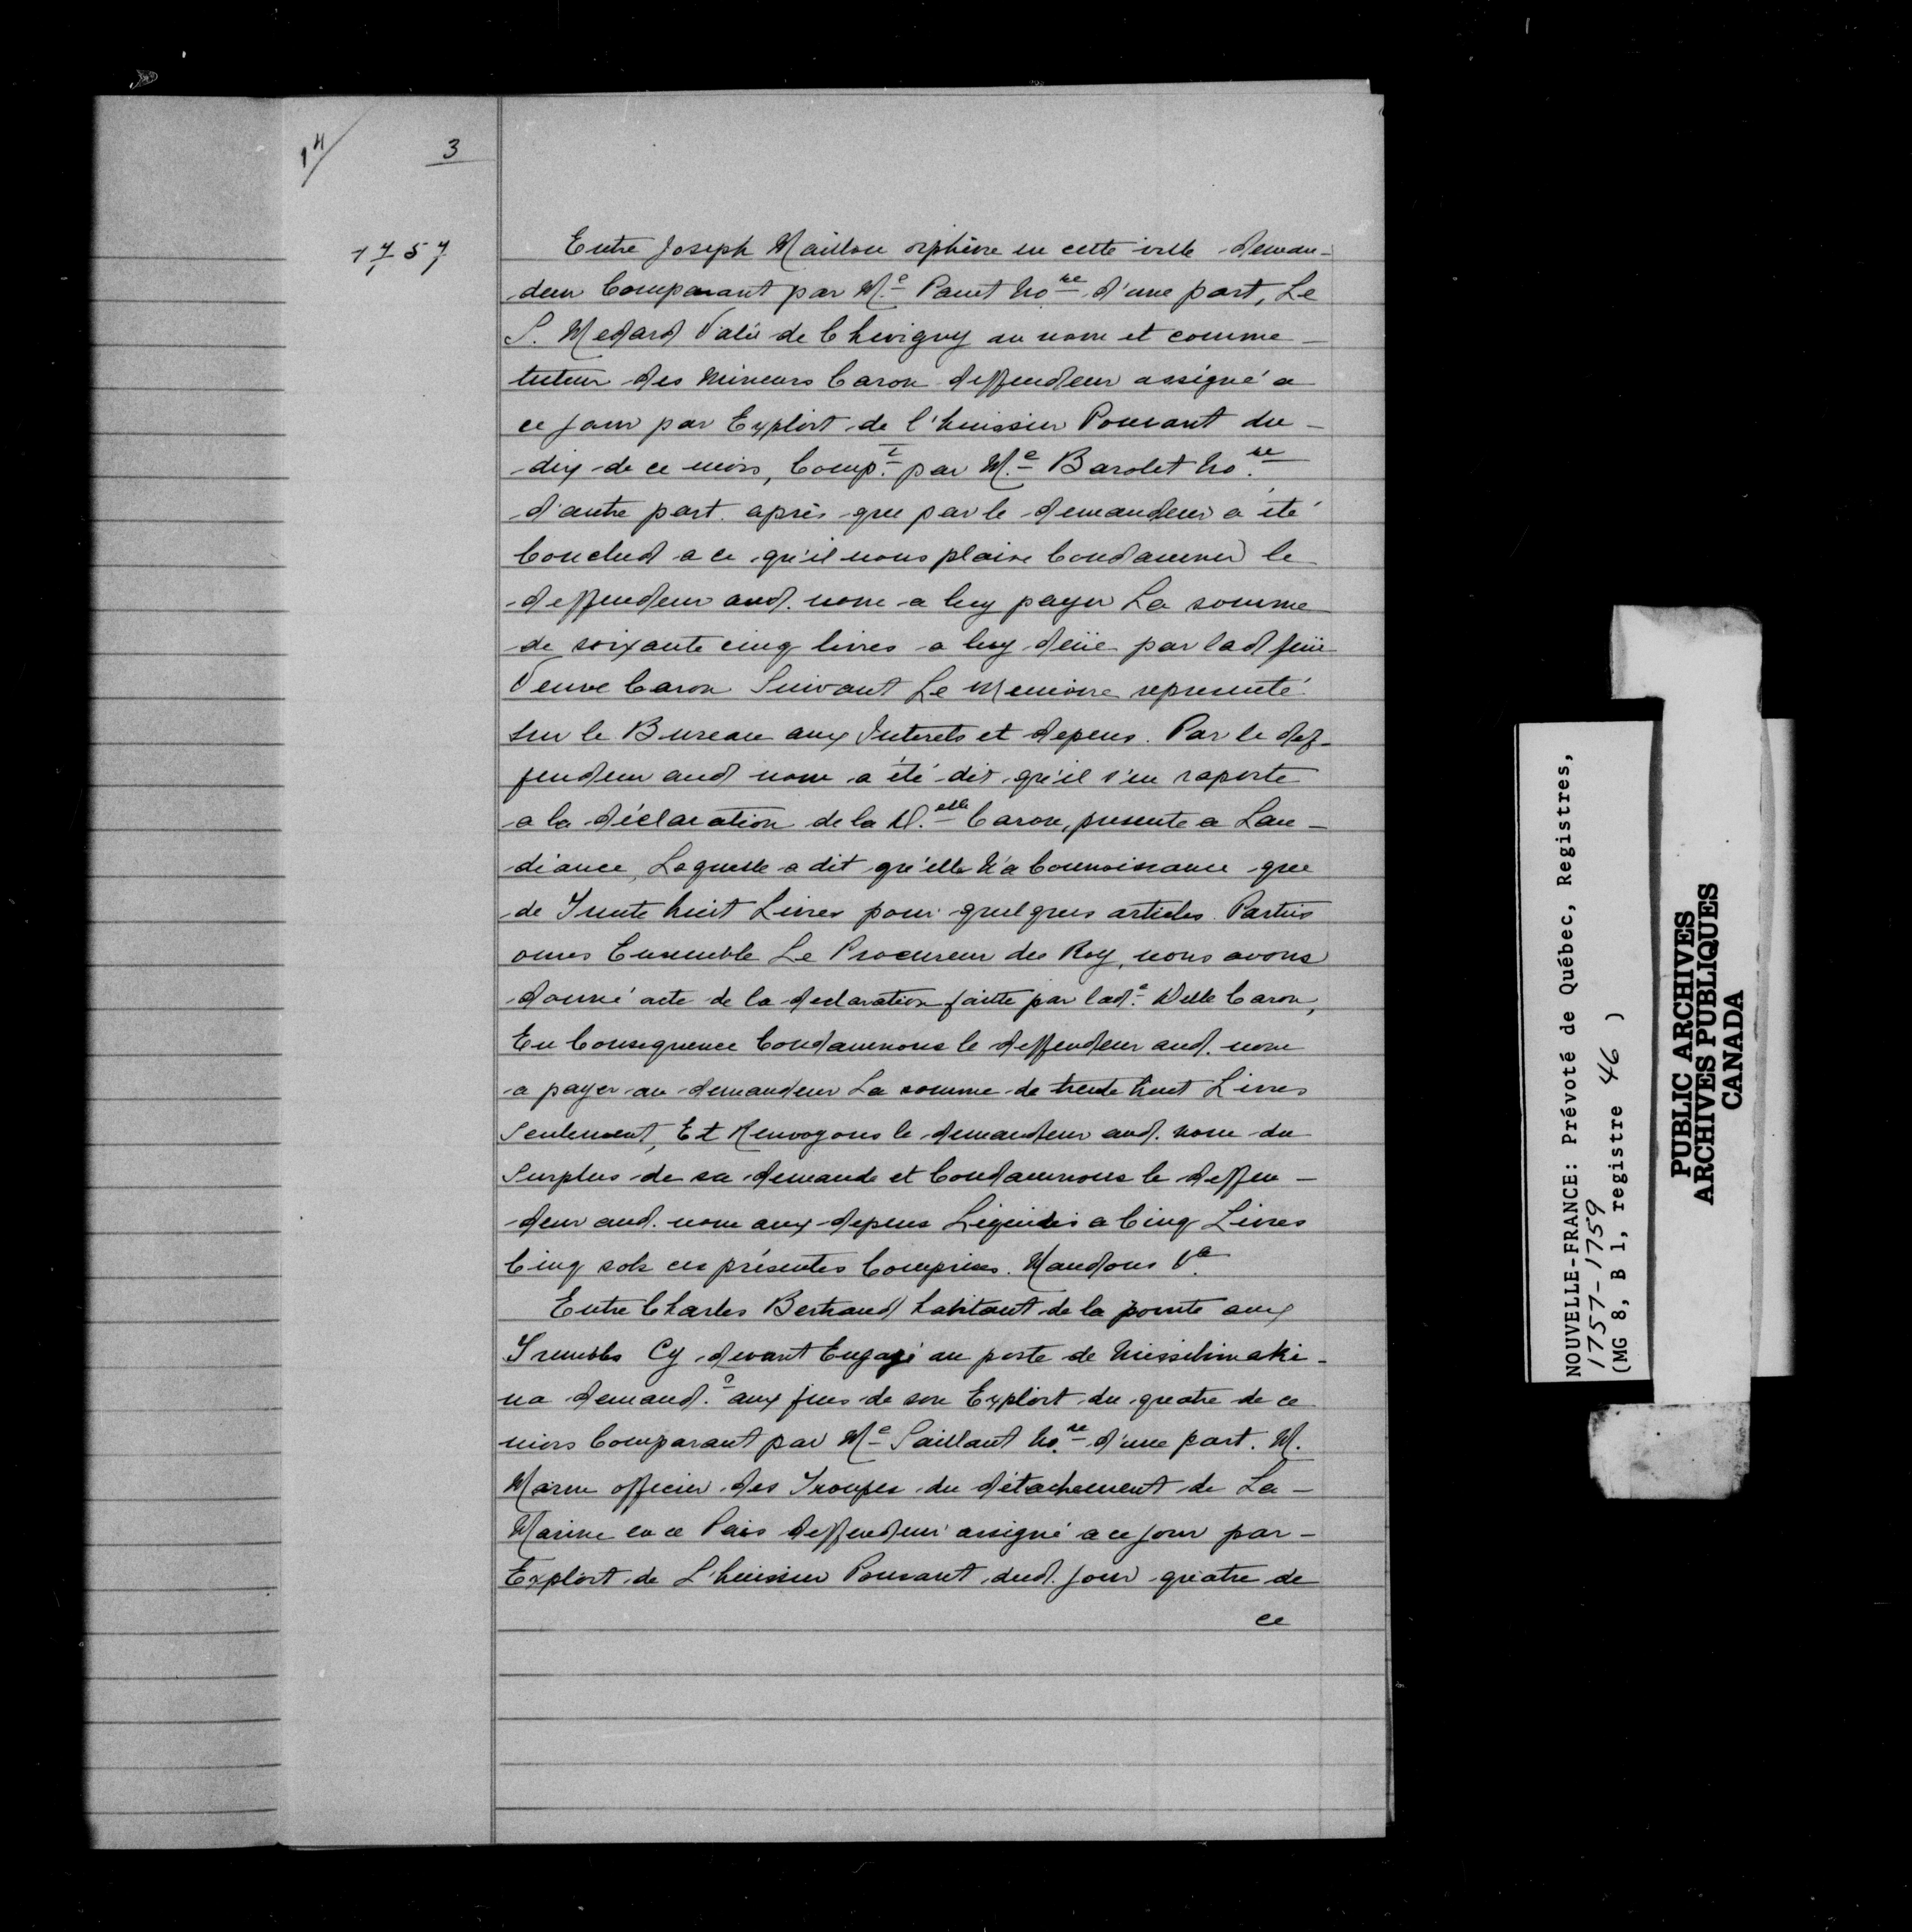 14/
3
1757
Entre Joseph Maillou orphèvre en cette ville deman-
deur Comparant par M.e Panet No.re d'une part, Le
S. Medard Valié de Chevigny au nom et comme
tuteur des mineurs Caron deffendeur assigné a
ce jour par Exploit de l'huissier Pourant du
dix de ce mois, Comp.t par M.e Barolet No.re
d'autre part. après que par le demandeur a été
Conclud a ce qu'il nous plaise Condamner le
deffendeur aud. nom a luy payer La somme
de soixante cinq livres a luy deüe par lad feüe
Veuve Caron Suivant Le Memoire representé
sur le Bureau aux Interets et depens. Par le def-
fendeur aud nom a été dit qu'il s'en raporte
a la déclaration de la D.elle Caron, presente a Lau-
diance, Laquelle a dit qu'elle N'a Connoissance que
de Trente huit Livres pour quelques articles. Parties
ouies Ensemble Le Procureur du Roy, nous avons
donné acte de la declaration faitte par lad.e Delle Caron,
En Consequence Condamnons le deffendeur aud. nom
a payer au demandeur La somme de trente huit Livres
Seulement, Et Renvoyons le demandeur aud. nom du
Surplus de sa demande et Condamnons le deffen-
deur aud. nom aux depens Liquidés a Cinq Livres
Cinq sols ces présentes Comprises. Mandons V.a
Entre Charles Bertrand habitant de la pointe aux
Trembles Cy devant Engagé au poste de Missilimaki-
na demand.r aux fins de son Exploit du quatre de ce
mois Comparant par M.e Saillant No.re d'une part. M.
Marin officier des Troupes du détachement de La
Marine en ce Païs deffendeur assigné a ce jour par
Exploit de L'huissier Pourant dud. jour quatre de
ce
NOUVELLE-FRANCE: Prévoté de Québec, Registres,
1757-1759
(MG 8, B 1, registre 46 )
PUBLIC ARCHIVES
ARCHIVES PUBLIQUES
CANADA